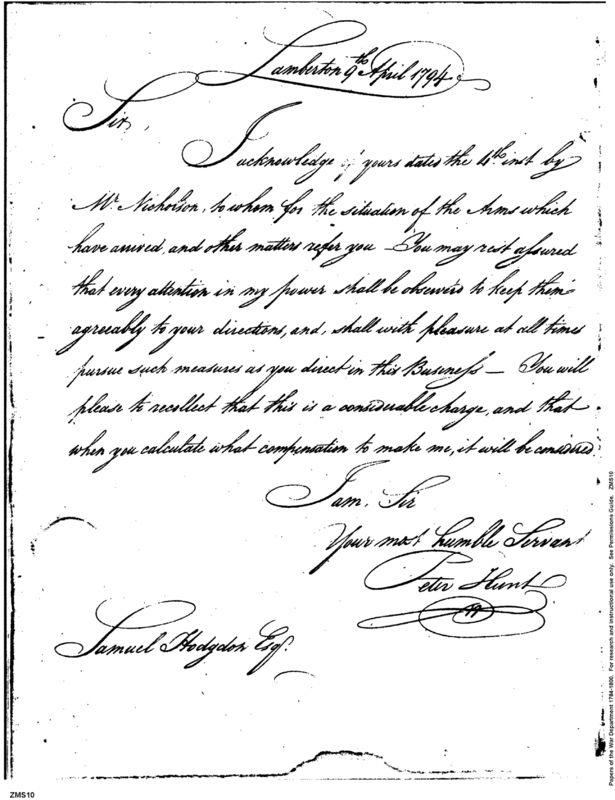 Lamberton 9th April 1794
Sir,
I acknowledge yours dated the 4th inst by
Mr. Nicholson, to whom for the situation of the Arms which
have arrived, and other matters refer you — You may rest assured
that every attention in my power shall be observed to keep them
agreeably to your directions, and, shall with pleasure at all times
pursue such measures as you direct in this Business — You will
please to recollect that this is a considerable charge, and that
when you calculate what compensation to make me, it will be considered
I am, Sir
Your most humble Servant
Peter Hunt
Samuel Hodgdon Esqr.
Papers of the War Department 1784-1800. For research and instructional use only. See Permissions Guide. ZMS10
ZMS10